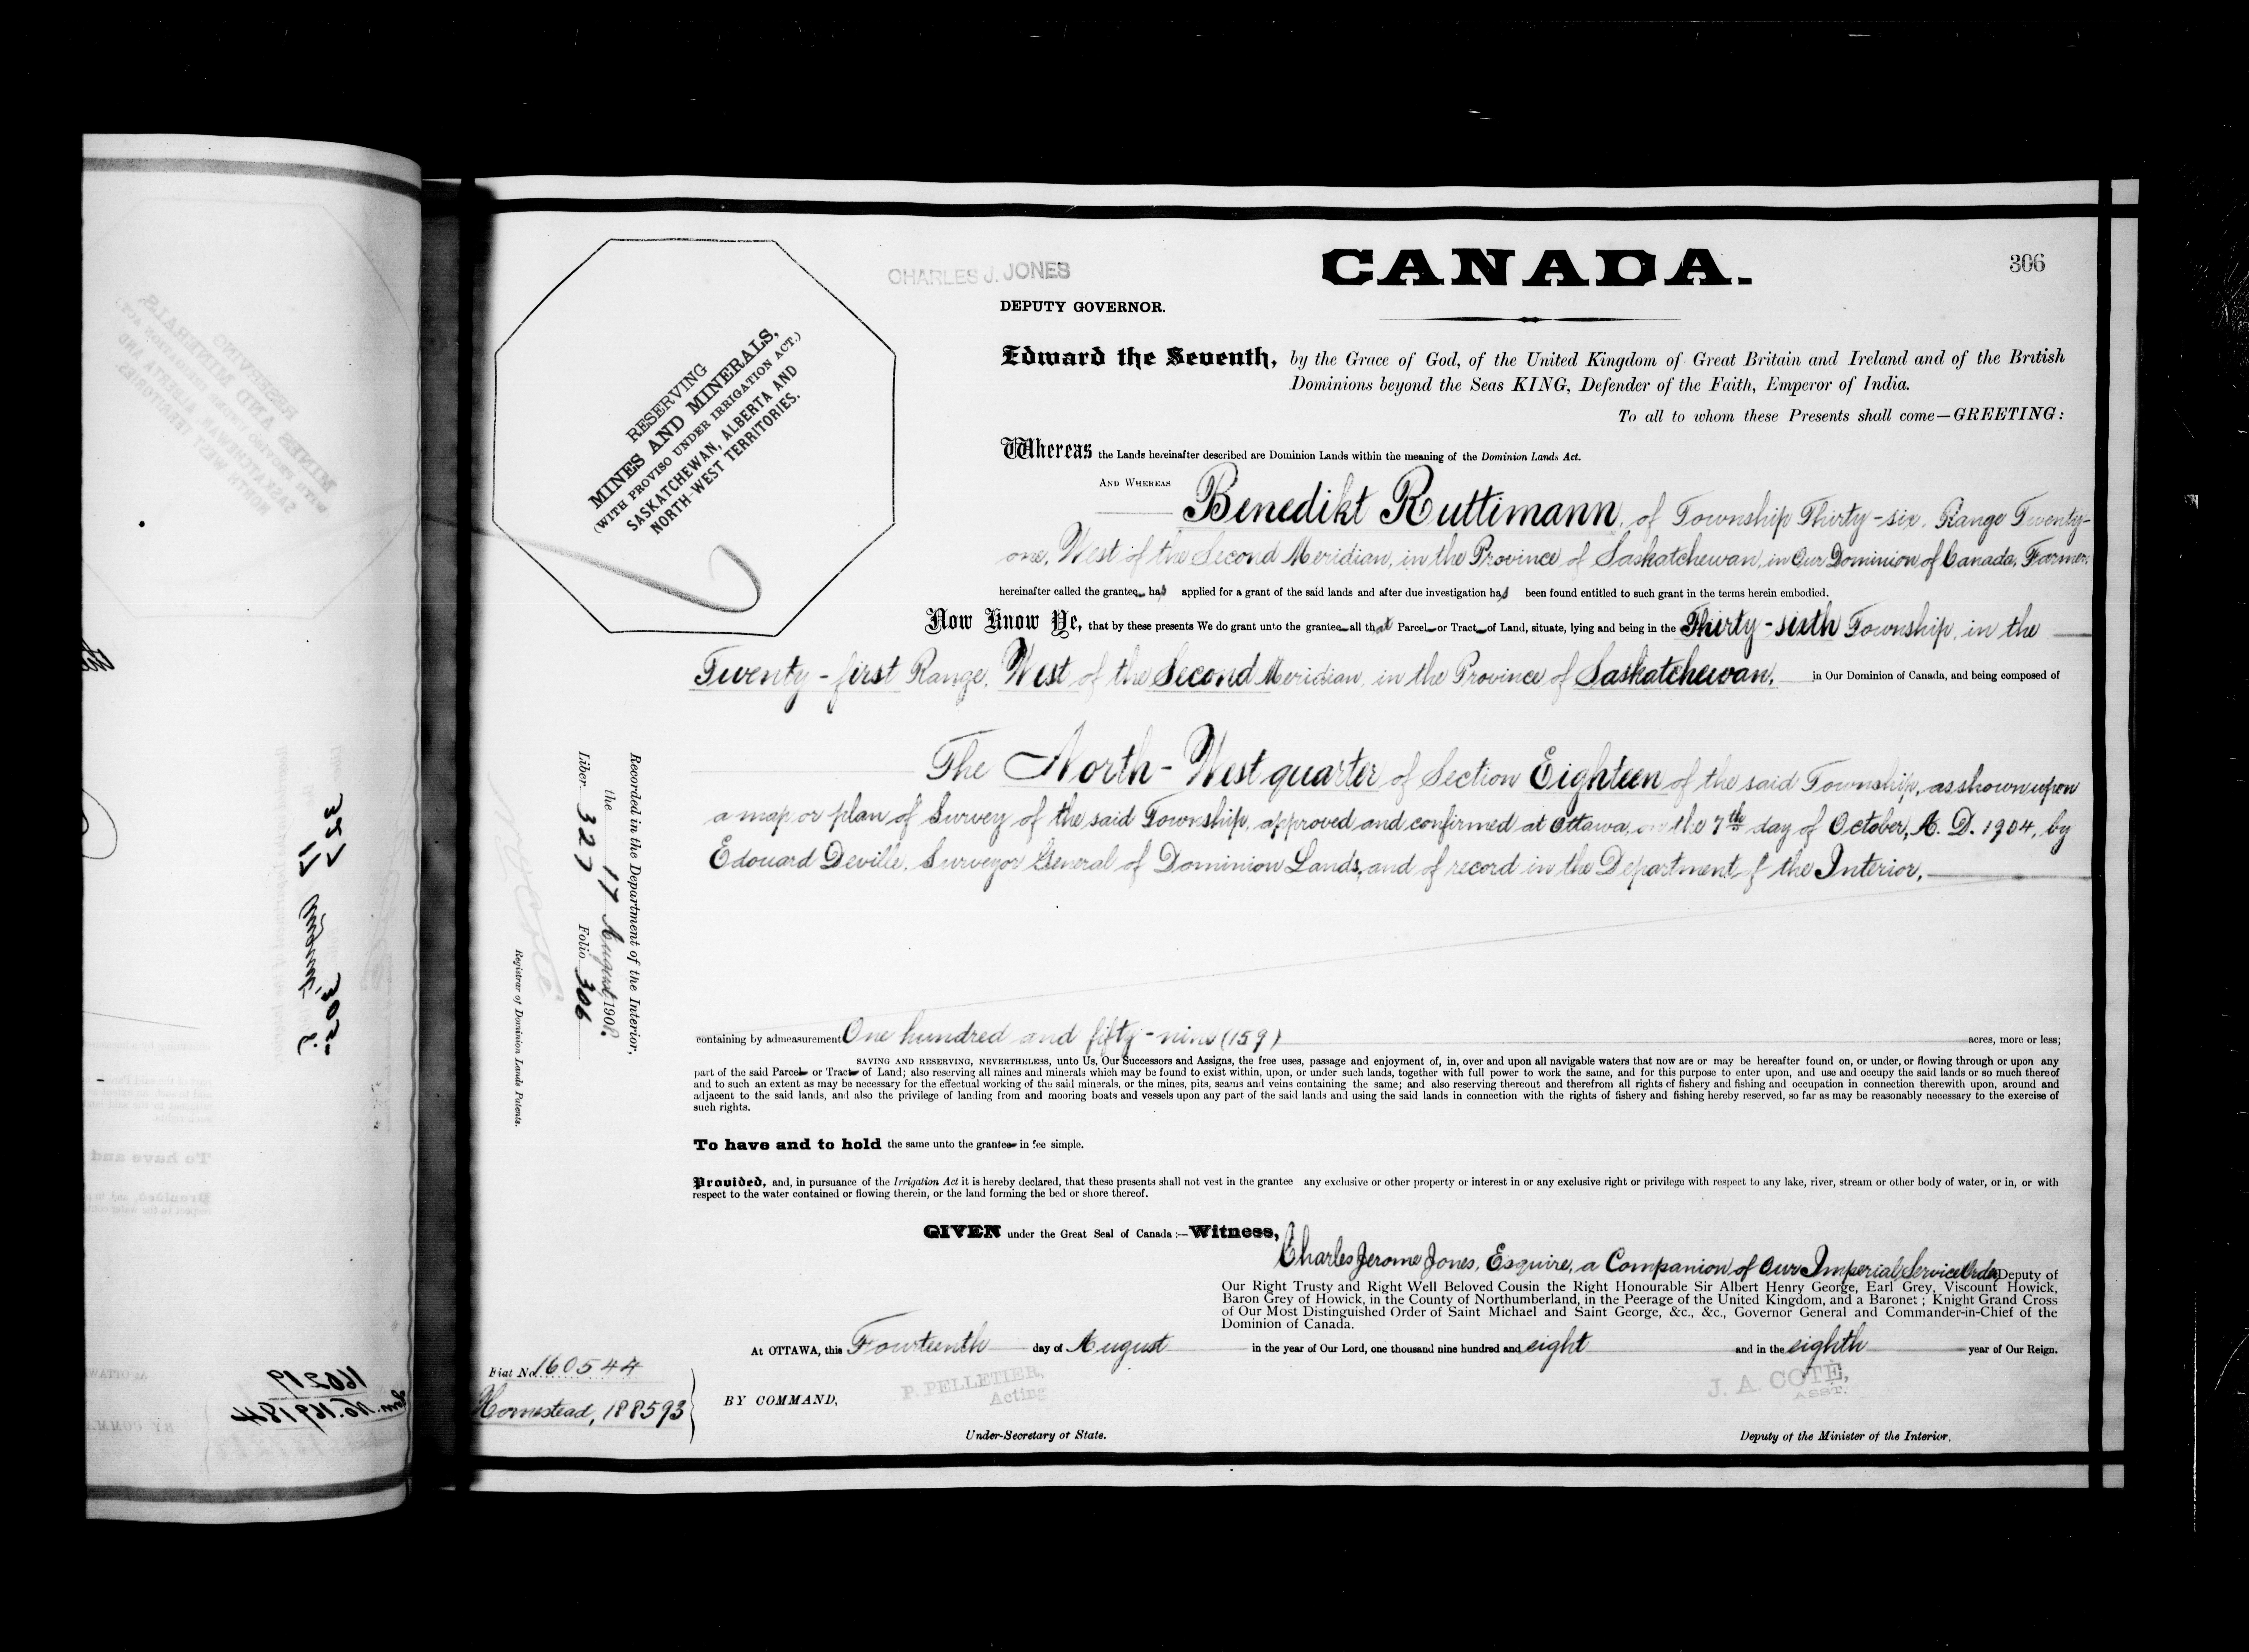 306
CANADA.
CHARLES J. JONES
DEPUTY GOVERNOR.
RESERVING
MINES AND MINERALS,
(WITH PROVISO UNDER IRRIGATION ACT.)
SASKATCHEWAN, ALBERTA AND
NORTH-WEST TERRITORIES.
Edward the Seventh, by the Grace of God, of the United Kingdom of Great Britain and Ireland and of the British
Dominions beyond the Seas KING, Defender of the Faith, Emperor of India.
To all to whom these Presents shall come—GREETING:
Whereas the Lands hereinafter described are Dominion Lands within the meaning of the Dominion Lands Act.
AND WHEREAS
Benedikt Ruttimann, of Township Thirty-six, Range Twenty-
one, West of the Second Meridian, in the Province of Saskatchewan, in Our Dominion of Canada, Farmer,
hereinafter called the grantee has applied for a grant of the said lands and after due investigation has been found entitled to such grant in the terms herein embodied.
Now Know Ye, that by these presents We do grant unto the grantee all that Parcel or Tract of Land, situate, lying and being in the Thirty-sixth Township, in the
Twenty-first Range, West of the Second Meridian, in the Province of Saskatchewan, in Our Dominion of Canada, and being composed of
The North-West quarter of Section Eighteen of the said Township, as shown upon
a map or plan of Survey of the said Township, approved and confirmed at Ottawa, on the 7th day of October, A. D. 1904, by
Edouard Deville, Surveyor General of Dominion Lands, and of record in the Department of the Interior,
containing by admeasurement One hundred and fifty-nine (159) acres, more or less;
SAVING AND RESERVING, NEVERTHELESS, unto Us, Our Successors and Assigns, the free uses, passage and enjoyment of, in, over and upon all navigable waters that now are or may be hereafter found on, or under, or flowing through or upon any
part of the said Parcel or Tract of Land; also reserving all mines and minerals which may be found to exist within, upon, or under such lands, together with full power to work the same, and for this purpose to enter upon, and use and occupy the said lands or so much thereof
and to such an extent as may be necessary for the effectual working of the said minerals, or the mines, pits, seams and veins containing the same; and also reserving thereout and therefrom all rights of fishery and fishing and occupation in connection therewith upon, around and
adjacent to the said lands, and also the privilege of landing from and mooring boats and vessels upon any part of the said lands and using the said lands in connection with the rights of fishery and fishing hereby reserved, so far as may be reasonably necessary to the exercise of
such rights.
To have and to hold the same unto the grantee in fee simple.
Provided, and, in pursuance of the Irrigation Act it is hereby declared, that these presents shall not vest in the grantee any exclusive or other property or interest in or any exclusive right or privilege with respect to any lake, river, stream or other body of water, or in, or with
respect to the water contained or flowing therein, or the land forming the bed or shore thereof.
GIVEN under the Great Seal of Canada:—Witness,
Charles Jerome Jones, Esquire, a Companion of Our Imperial Service Order Deputy of
Our Right Trusty and Right Well Beloved Cousin the Right Honourable Sir Albert Henry George, Earl Grey, Viscount Howick,
Baron Grey of Howick, in the County of Northumberland, in the Peerage of the United Kingdom, and a Baronet; Knight Grand Cross
of Our Most Distinguished Order of Saint Michael and Saint George, &c., &c., Governor General and Commander-in-Chief of the
Dominion of Canada.
At OTTAWA, this Fourteenth day of August in the year of Our Lord, one thousand nine hundred and eight and in the eighth year of Our Reign.
BY COMMAND,
P. PELLETIER,
Acting
Under-Secretary of State.
J. A. COTÉ,
ASST.
Deputy of the Minister of the Interior.
Fiat No. 160544
Homestead, 188593
Recorded in the Department of the Interior,
the 17 August 1908.
Liber 327 Folio 306
Registrar of Dominion Lands Patents.